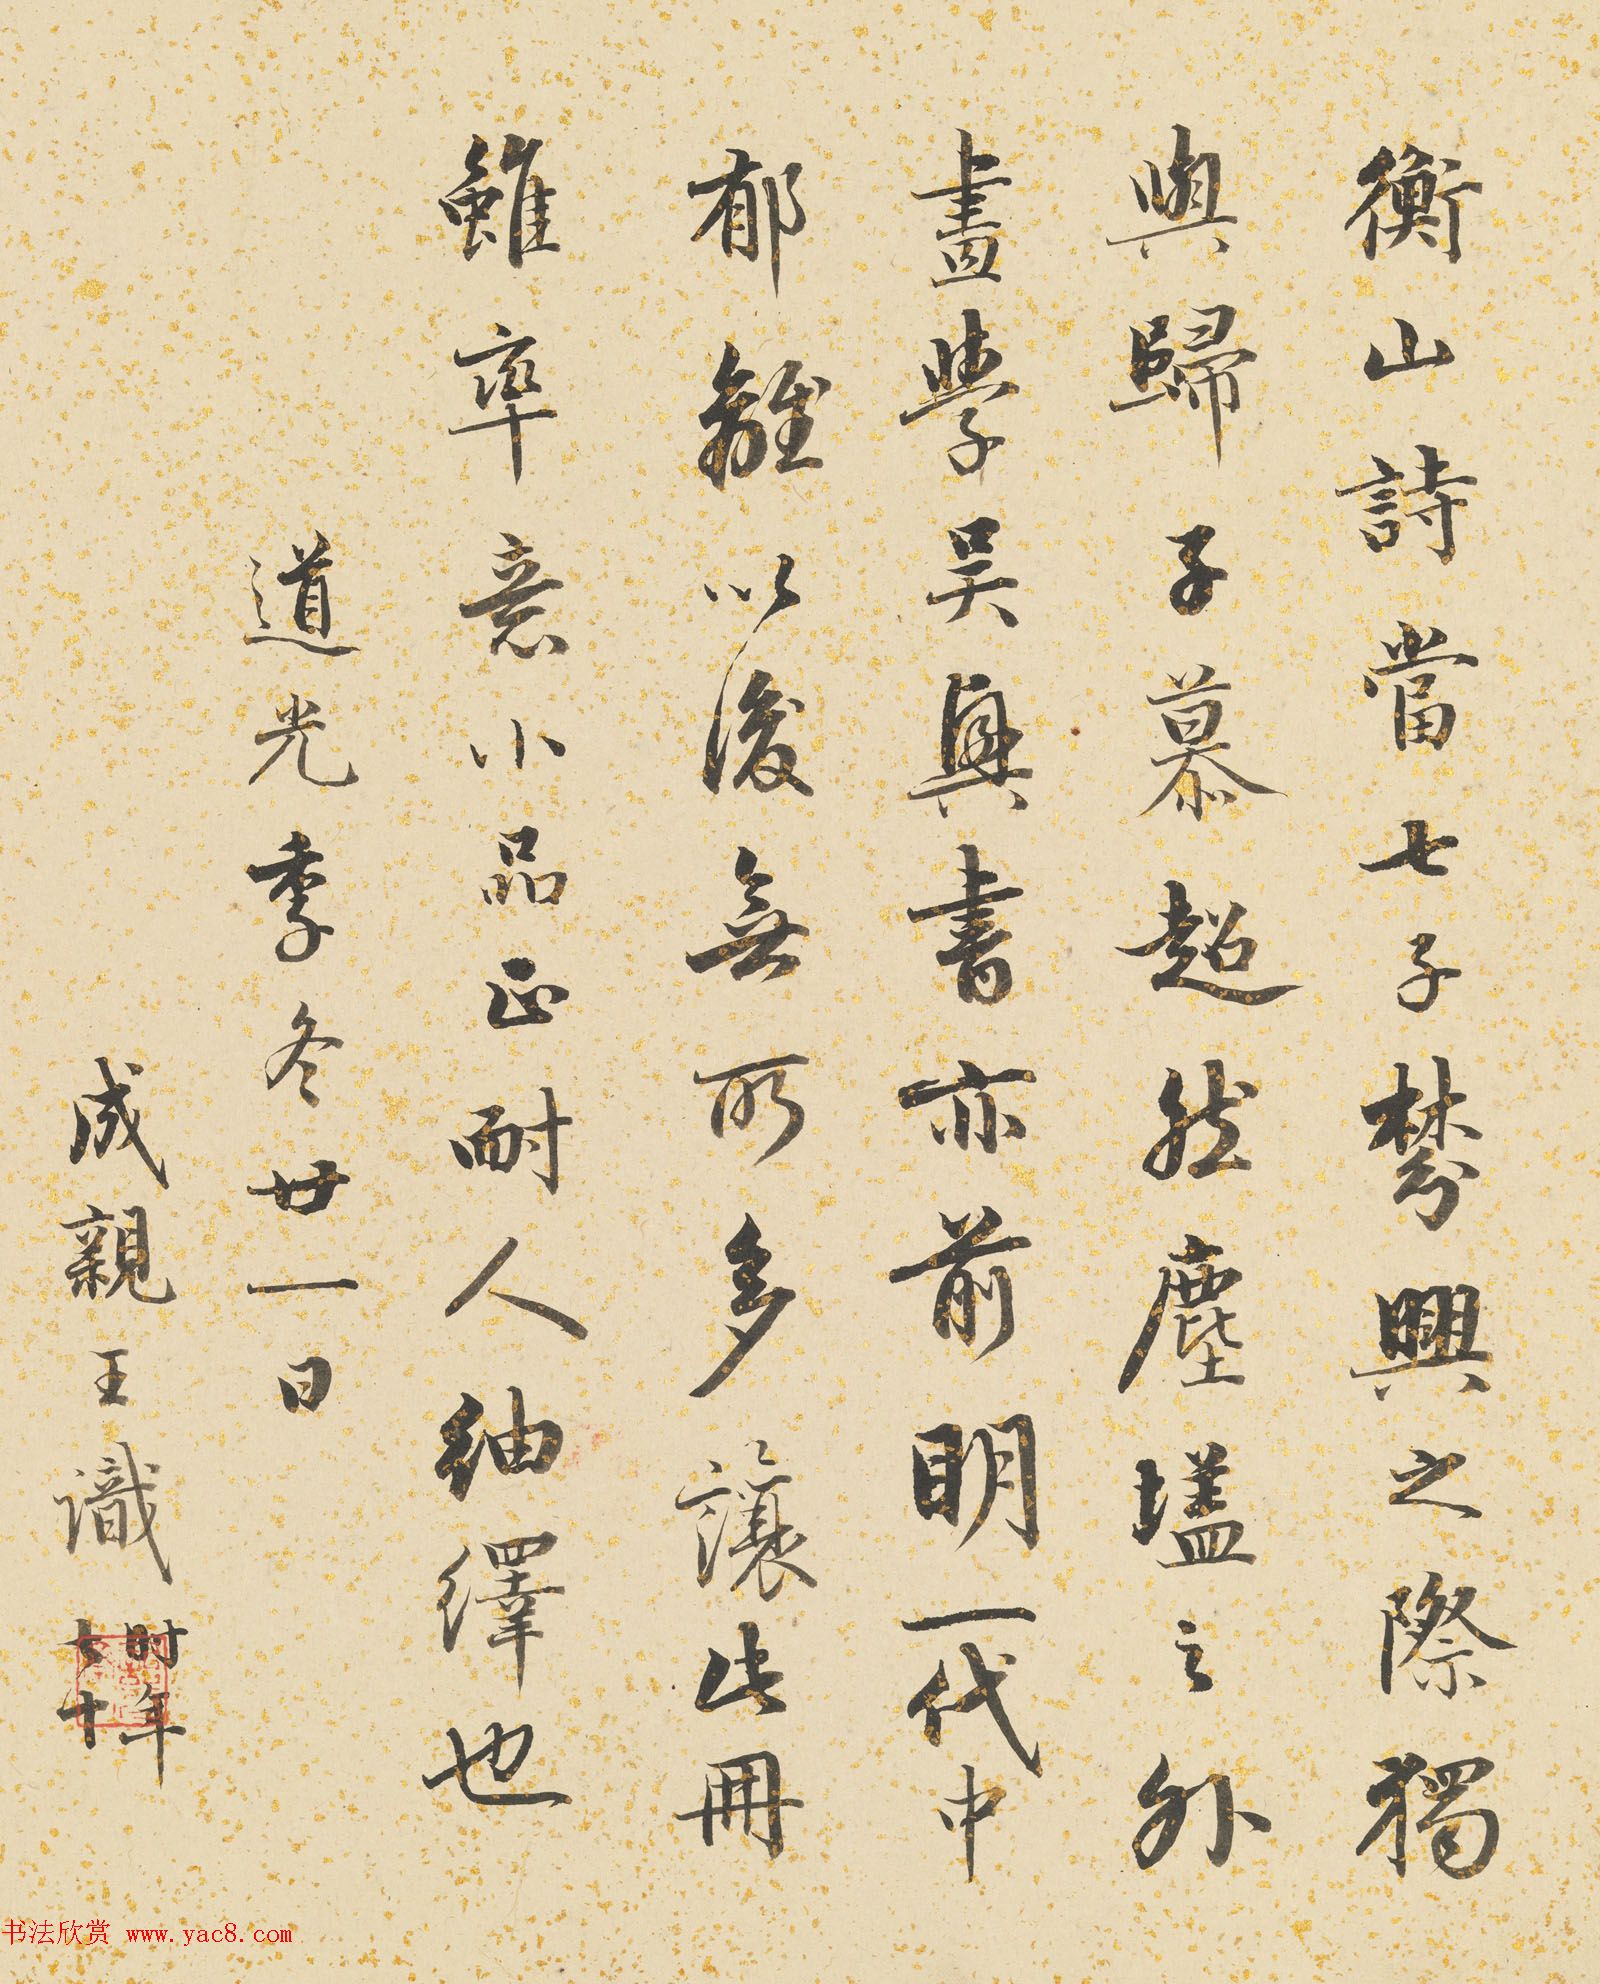 衡山詩當七子棼興之際獨
與歸子慕超然塵壒之外
畫學吴興書亦前明一代中
郁離以後無所多讓此冊
雖率意小品正耐人紬繹也
道光季冬廿一日
成親王識時年
七十
书法欣赏 www.yac8.com